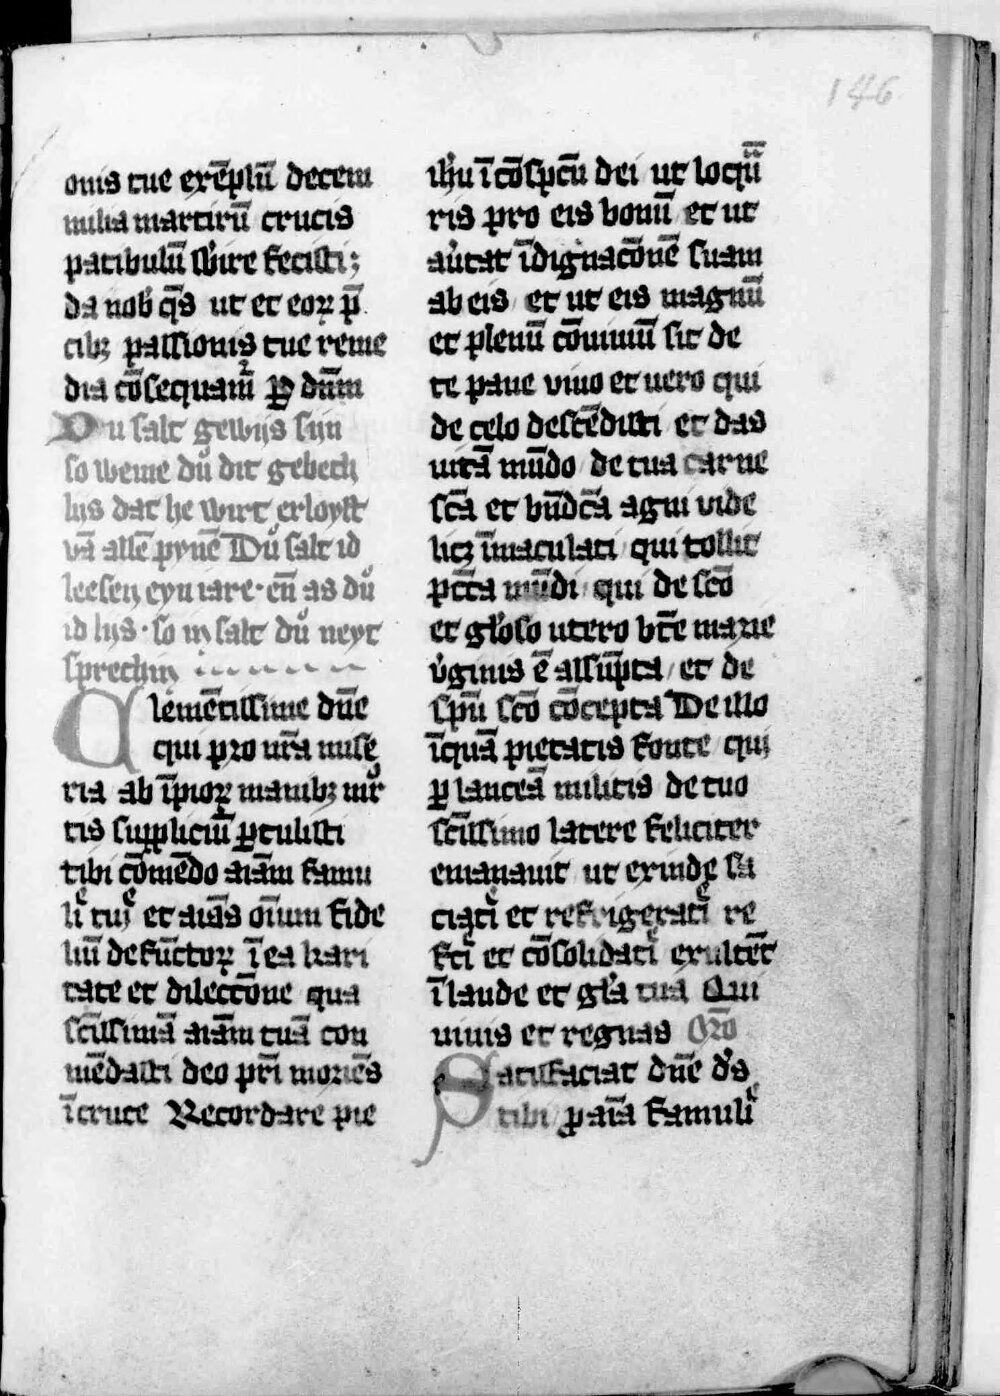 146
onis tue exēplū decem
milia martirū crucis
patibulū sb̓ire fecisti;
da nob̓ q̄s ut et eoꝝ p̄
cibꝫ passionis tue reme
dia cōsequamᷣ Ꝑ dn̄m
Du salt gewijs sijn
so weme dů dit gebech
lijs dat he wirt erloyst
vā allē pynē Dů salt id
leesen eyn iare · en̄ as dů
id lijs · so in salt dů neyt
sprechin
Clemētissime dn̄e
qui pro nr̄a mise
ria ab īpioꝝ manibꝫ mr̓
tis suppliciū ꝑtulisti
tibi cōmēdo aīam famu
lī tuī et aīas om̄ium fide
liū defūctoꝝ ī ea kari
tate et dilectōne qua
sc̄issimā aīam tuā con
mēdasti deo pr̄i moriēs
ī cruce Recordare pie
ih̓u ī cōspc̄u dei ut loqū
ris pro eis bonū et ut
au̓tat īdignacōnē suam
ab eis et ut eis magnū
et plenū cōuiuiū sit de
te pane viuo et uero qui
de celo descēdisti et das
uitā mūdo de tua carne
sc̄a et bn̄dc̄a agni vide
licꝫ īmaculati qui tollit
pcc̄a mūdi qui de sc̄o
et gl̓oso utero bt̄e marie
v̓ginis ē assūpta et de
spū sc̄o cōcepta De illo
īquā pietatis fonte qui
ꝑ lanceā militis de tuo
sc̄issimo latere feliciter
emanauit ut exinde sa
ciati et refrigerati re
fc̄i et cōsolidati exultēt
ī laude et gl̓a tua Qui
uiuis et regnas Oro̅
Satisfaciat dn̄e d̓s
tibi ꝓ aīa famuli